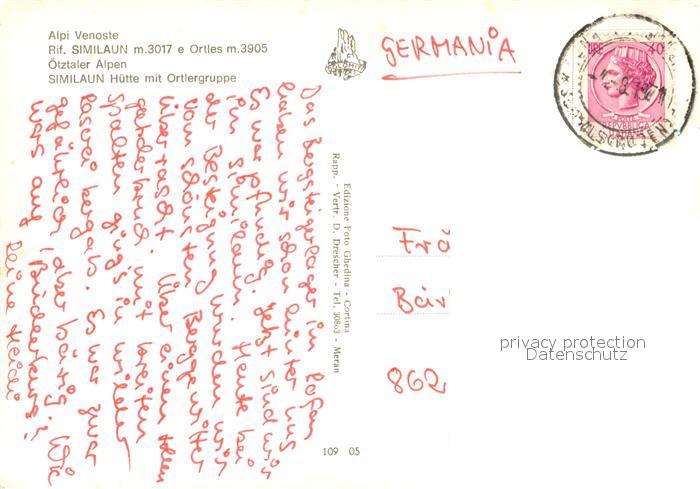 Alpi Venoste
Rif. SIMILAUN m.3017 e Ortles m.3905
Ötztaler Alpen
SIMILAUN Hütte mit Ortlergruppe
GERMANIA
LIRE 40
Das Bergsteigerlager in Rofen
haben wir schon hinter uns
Es war pfundig. Jetzt sind wir
im Similaun. Heute bei
der Besteigung wurden wir
vom schönsten Berggewitter
überrascht. Über einen tollen
Gletscherbruch mit breiten
Spalten ging's in wilder
bergab. Es war zwar
gefährlich, aber bärig. Wie
wars auf
Deine Heidi
Edizione Foto Ghedina - Cortina
Rapp. - Vertr. D. Drescher - Tel. 30863 - Meran
Frä
Bair
862
privacy protection
Datenschutz
109 05